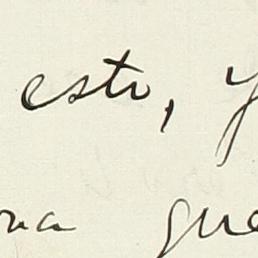 esto, y
na que